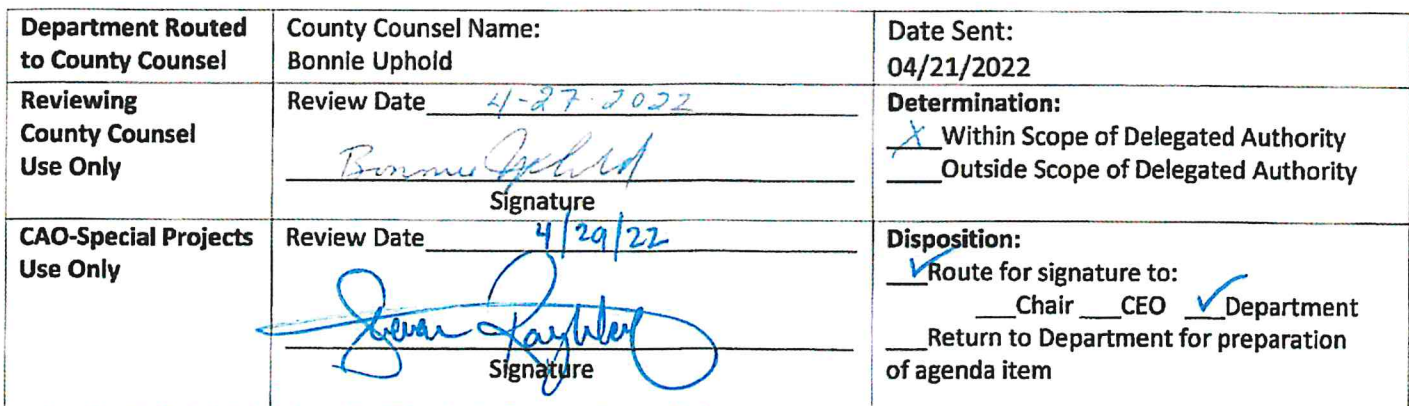 Department Routed
to County Counsel
County Counsel Name:
Bonnie Uphold
Date Sent:
04/21/2022
Reviewing
County Counsel
Use Only
Review Date 4-27-2022
Bonnie Uphold
Signature
Determination:
X Within Scope of Delegated Authority
___Outside Scope of Delegated Authority
CAO-Special Projects
Use Only
Review Date 4/29/22
Signature
Disposition:
✓Route for signature to:
___Chair ___CEO ✓Department
___Return to Department for preparation
of agenda item